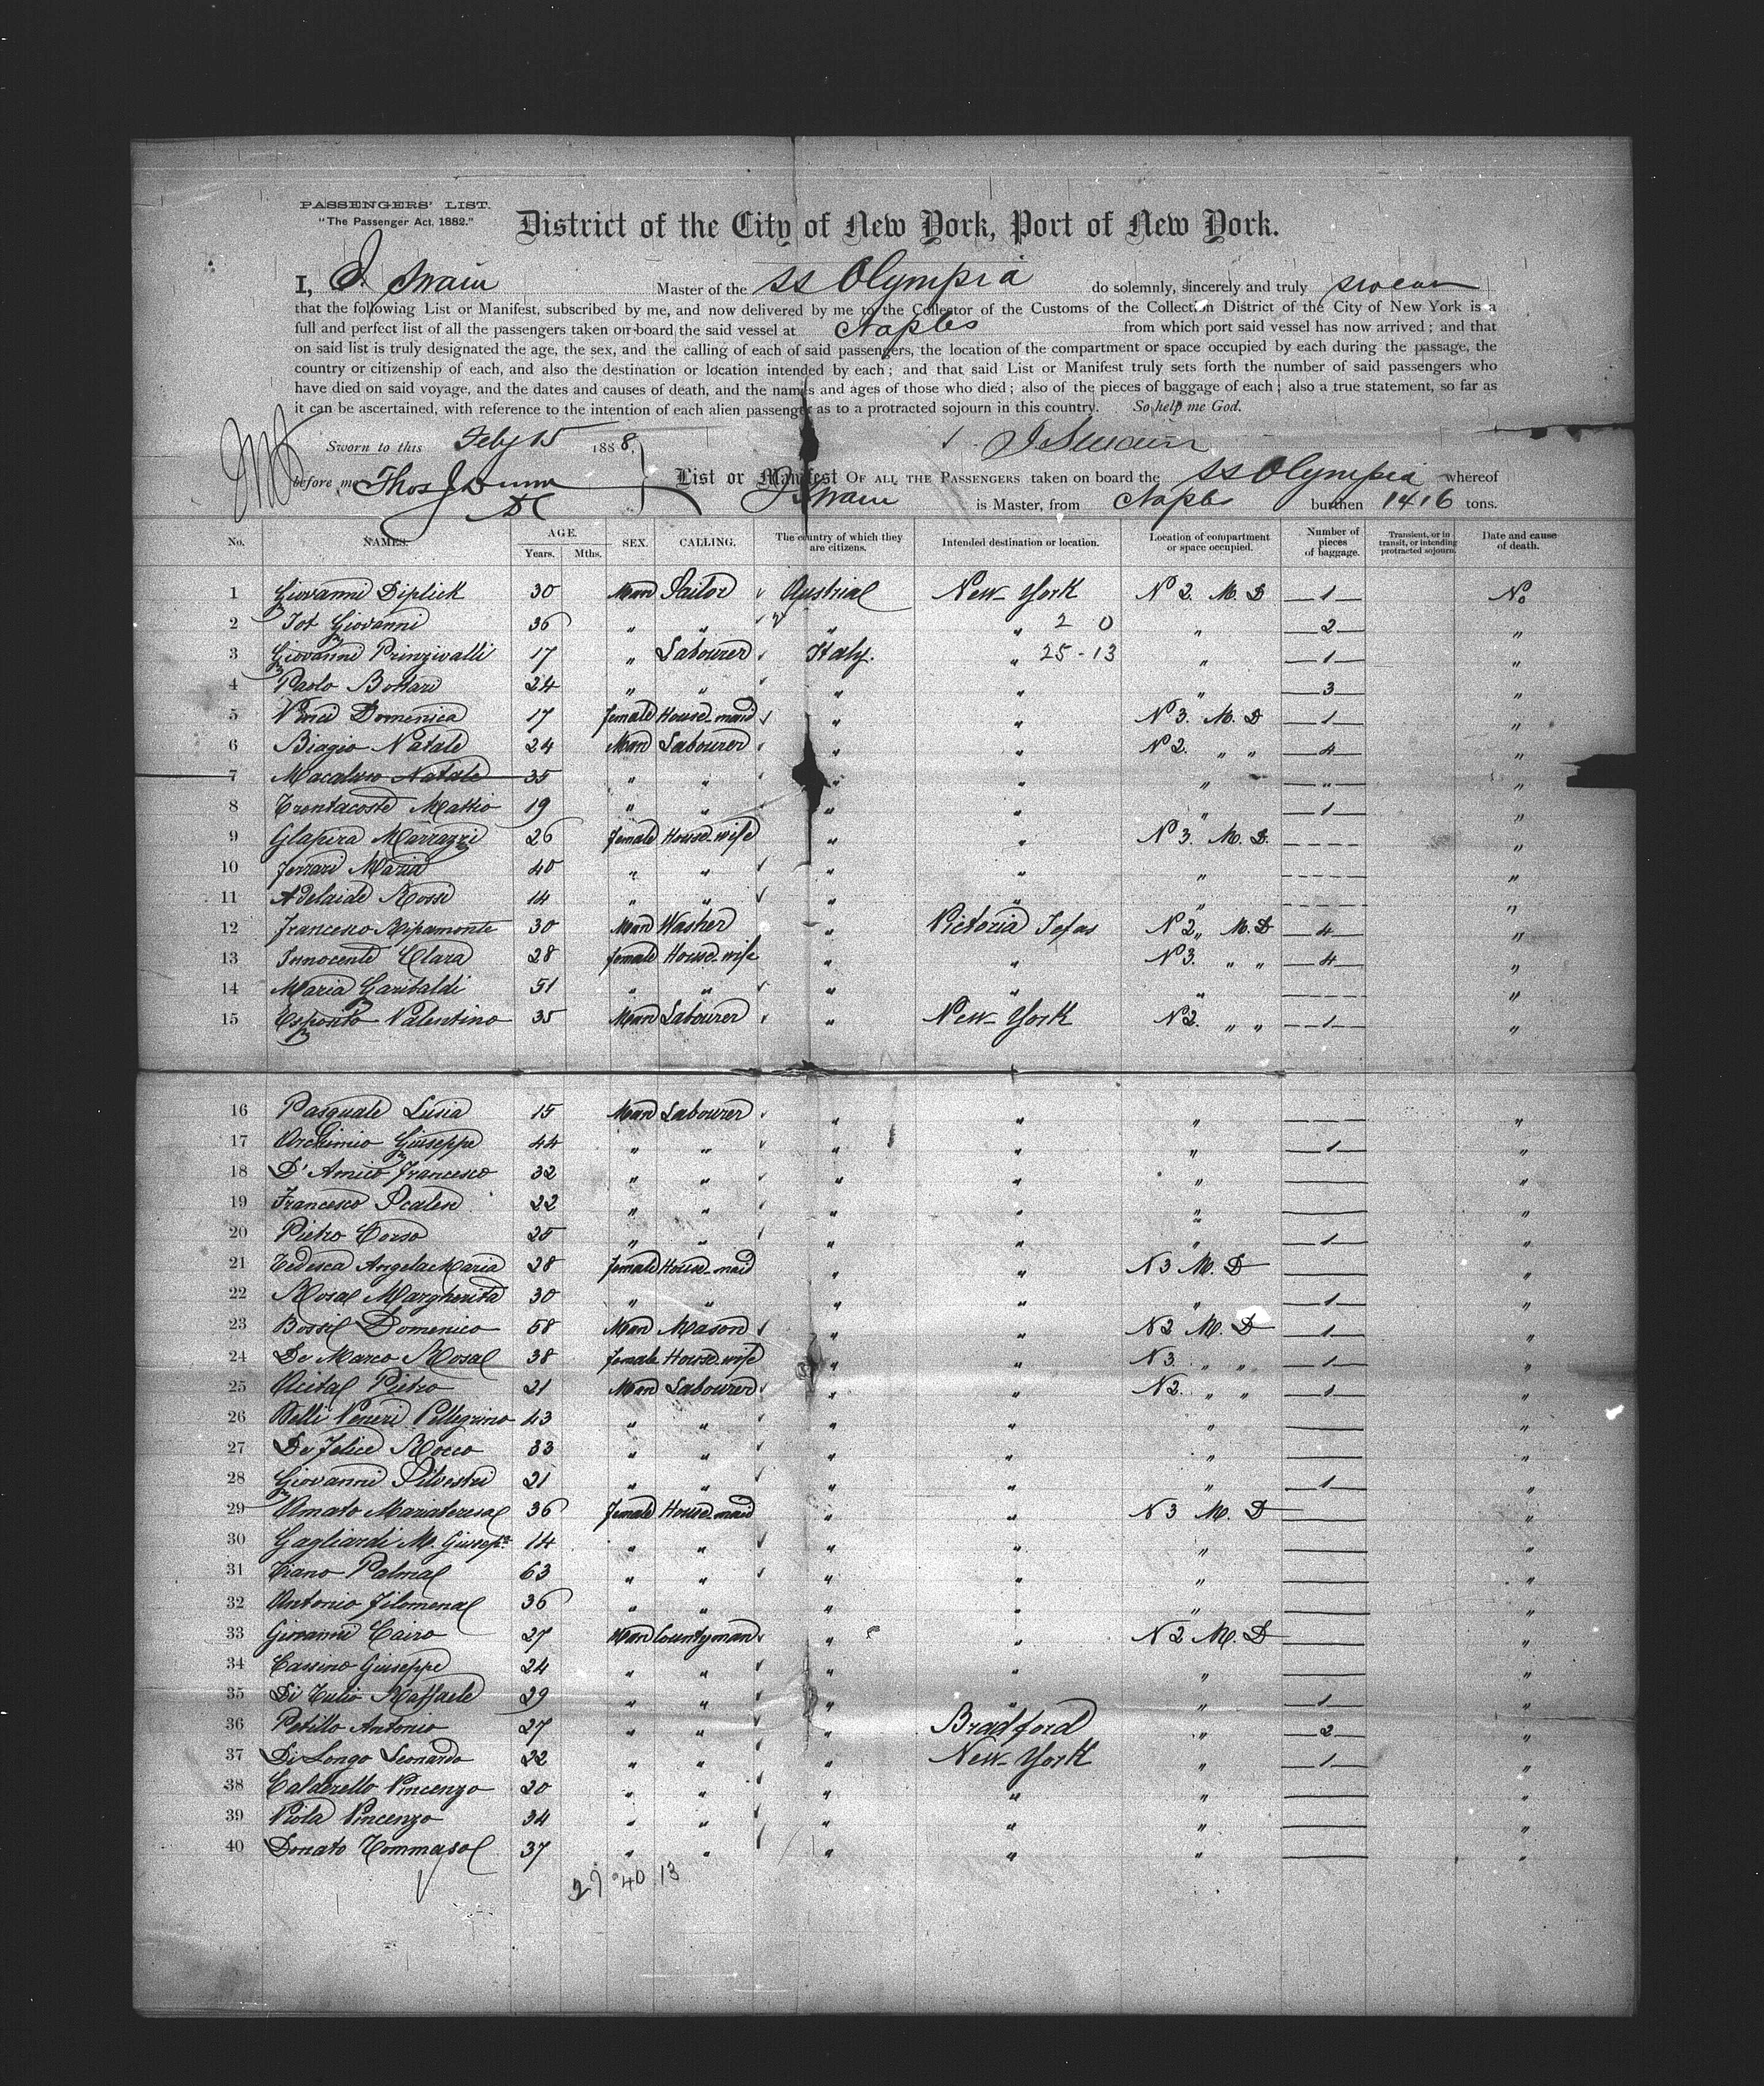 PASSENGERS' LIST.
"The Passenger Act, 1882."
District of the City of New York, Port of New York.
I, J. Swain Master of the SS Olympia do solemnly, sincerely and truly swear
that the following List or Manifest, subscribed by me, and now delivered by me to the Collector of the Customs of the Collection District of the City of New York is a
full and perfect list of all the passengers taken on board the said vessel at Naples from which port said vessel has now arrived; and that
on said list is truly designated the age, the sex, and the calling of each of said passengers, the location of the compartment or space occupied by each during the passage, the
country or citizenship of each, and also the destination or location intended by each; and that said List or Manifest truly sets forth the number of said passengers who
have died on said voyage, and the dates and causes of death, and the names and ages of those who died; also of the pieces of baggage of each; also a true statement, so far as
it can be ascertained, with reference to the intention of each alien passenger as to a protracted sojourn in this country. So help me God.
Sworn to this Feby 15 1888, J Swain
before me Thos J Dunn
DC
List or Manifest OF ALL THE PASSENGERS taken on board the SS Olympia whereof
J Swain is Master, from Naples burthen 1416 tons.
No. NAMES. AGE. Years. Mths. SEX. CALLING. The country of which they are citizens. Intended destination or location. Location of compartment or space occupied. Number of pieces of baggage. Transient, or in transit, or intending protracted sojourn. Date and cause of death.
1 Giovanni Diplick 30 Man Sailor Austria New-York N 2. M. D 1 No
2 Tot Giovanni 36 " " " " 2 0 " 2 "
3 Giovanni Prinzivalli 17 " Labourer Italy. " 25-13 " 1 "
4 Paolo Bottari 24 " " " " " 3 "
5 Vinci Domenica 17 female House-maid " " N 3. M. D 1 "
6 Biagio Natale 24 Man Labourer " " N 2. " " 4 "
7 Macaluso Natale 35 " " " " " " "
8 Trentacoste Mattio 19 " " " " " 1 "
9 Glapira Marrazzi 26 female House-wife " " N 3. M. D. "
10 Ferrari Maria 40 " " " " " "
11 Adelaide Rossi 14 " " " " " "
12 Francesco Ripamonte 30 Man Washer " Victoria Texas N 2 " M. D 4 "
13 Innocente Clara 28 female House-wife " " N 3. " " 4 "
14 Maria Garibaldi 51 " " " " " "
15 Esposito Valentino 35 Man Labourer " New-York N 2. " " 1 "
16 Pasquale Lusia 15 Man Labourer " " " "
17 Archimio Giuseppe 44 " " " " " 1 "
18 D'Amico Francesco 32 " " " " " "
19 Francesco Scalese 22 " " " " " "
20 Pietro Corso 25 " " " " " 1 "
21 Tedesca Angela Maria 28 female House-maid " " N 3 M. D "
22 Rosa Margherita 30 " " " " " 1 "
23 Bossi Domenico 58 Man Mason " " N 2 M. D 1 "
24 De Marco Rosa 38 female House-wife " " N 3. " " 1 "
25 Acita Pietro 21 Man Labourer " " N 2. " " 1 "
26 Belli Veneri Pellegrino 43 " " " " " "
27 De Felice Rocco 33 " " " " " "
28 Giovanni Silvestri 21 " " " " " 1 "
29 Amato Mariateresa 36 female House-maid " " N 3 M. D "
30 Gagliardi M. Giusepa 14 " " " " " "
31 Ciano Palma 63 " " " " " "
32 Antonio Filomena 36 " " " " " "
33 Giovanni Cairo 27 Man Countyman " " N 2 M. D "
34 Cassino Giuseppe 24 " " " " " "
35 Di Tulio Raffaele 29 " " " " " 1 "
36 Petillo Antonio 27 " " " Bradford " 2 "
37 Di Longo Leonardo 22 " " " New-York " 1 "
38 Calderello Vincenzo 20 " " " " " "
39 Viola Vincenzo 34 " " " " " "
40 Donato Tommaso 37 " " " " " "
27 40 13